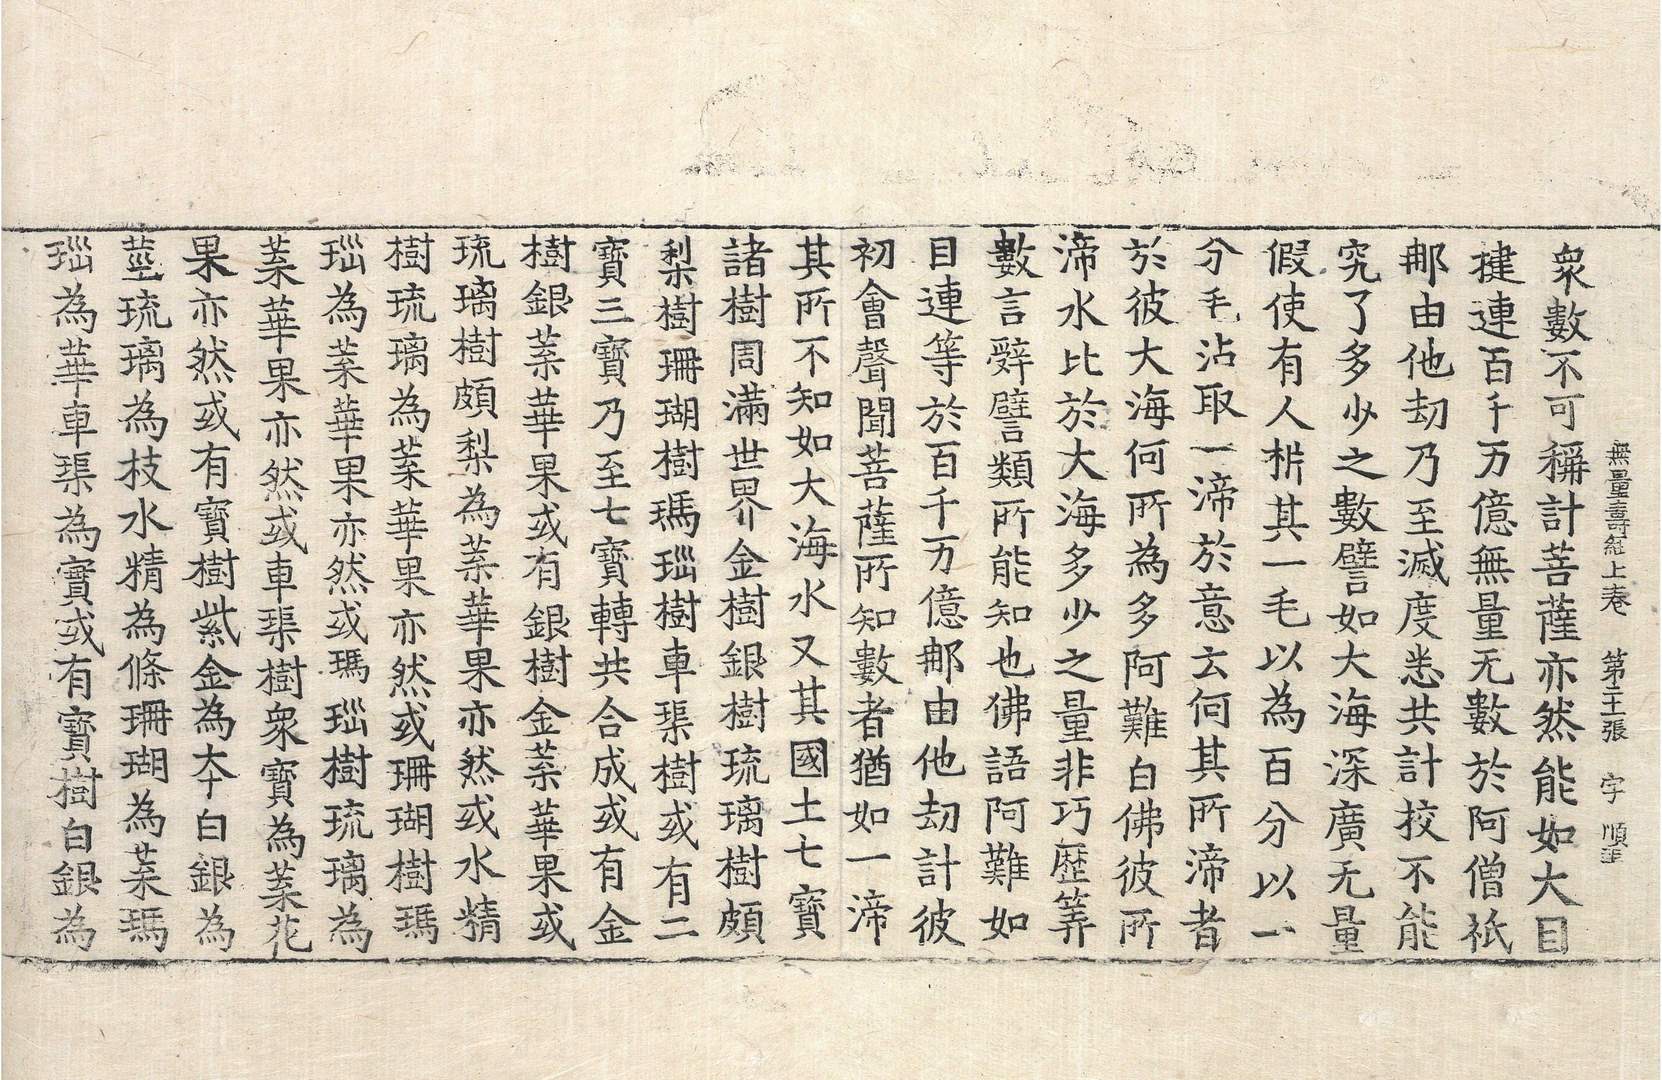 無量壽経上巻 第二十一張 字 順
衆數不可稱計菩薩亦然能如大目
揵連百千万億無量无數於阿僧祇
那由他劫乃至滅度悉共計挍不能
究了多少之數譬如大海深廣无量
假使有人㭊其一毛以為百分以一
分毛沾取一渧於意云何其所渧者
於彼大海何所為多阿難白佛彼所
渧水比於大海多少之量非巧歴筭
數言辤譬類所能知也佛語阿難如
目連等於百千万億那由他劫計彼
初會聲聞菩薩所知數者猶如一渧
其所不知如大海水又其國土七寶
諸樹周滿世界金樹銀樹琉璃樹頗
梨樹珊瑚樹瑪瑙樹車渠樹或有二
寶三寶乃至七寶轉共合成或有金
樹銀葉華果或有銀樹金葉華果或
琉璃樹頗梨為葉華果亦然或水精
樹琉璃為葉華果亦然或珊瑚樹瑪
瑙為葉華果亦然或瑪瑙樹琉璃為
葉華果亦然或車渠樹衆寶為葉花
果亦然或有寶樹紫金為本白銀為
莖琉璃為枝水精為條珊瑚為葉瑪
瑙為華車渠為實或有寶樹白銀為